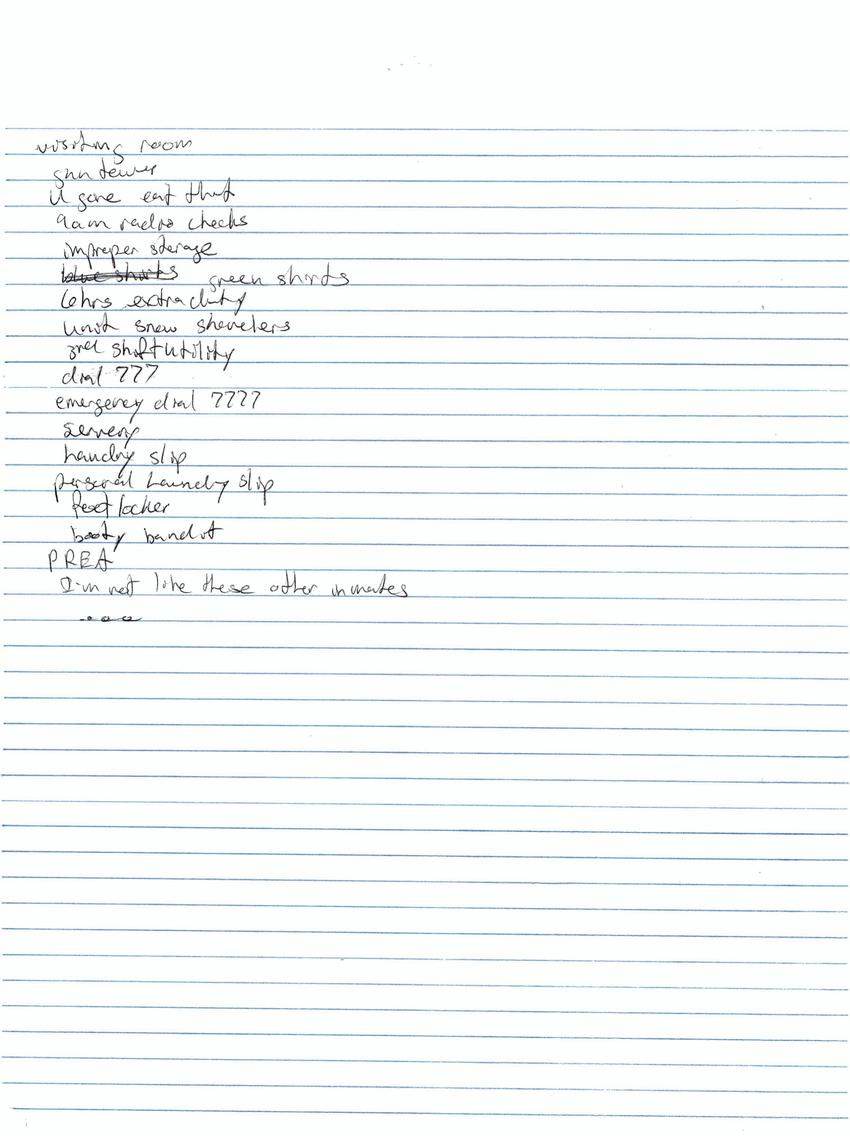 visiting room
gun tower
U gone eat that
9am radio checks
improper storage
blue shirts green shirts
6hrs extra duty
unit snow shovelers
3rd shift utility
dial 777
emergency dial 7777
servery
laundry slip
personal laundry slip
foot locker
booty bandit
PREA
I'm not like these other inmates
....